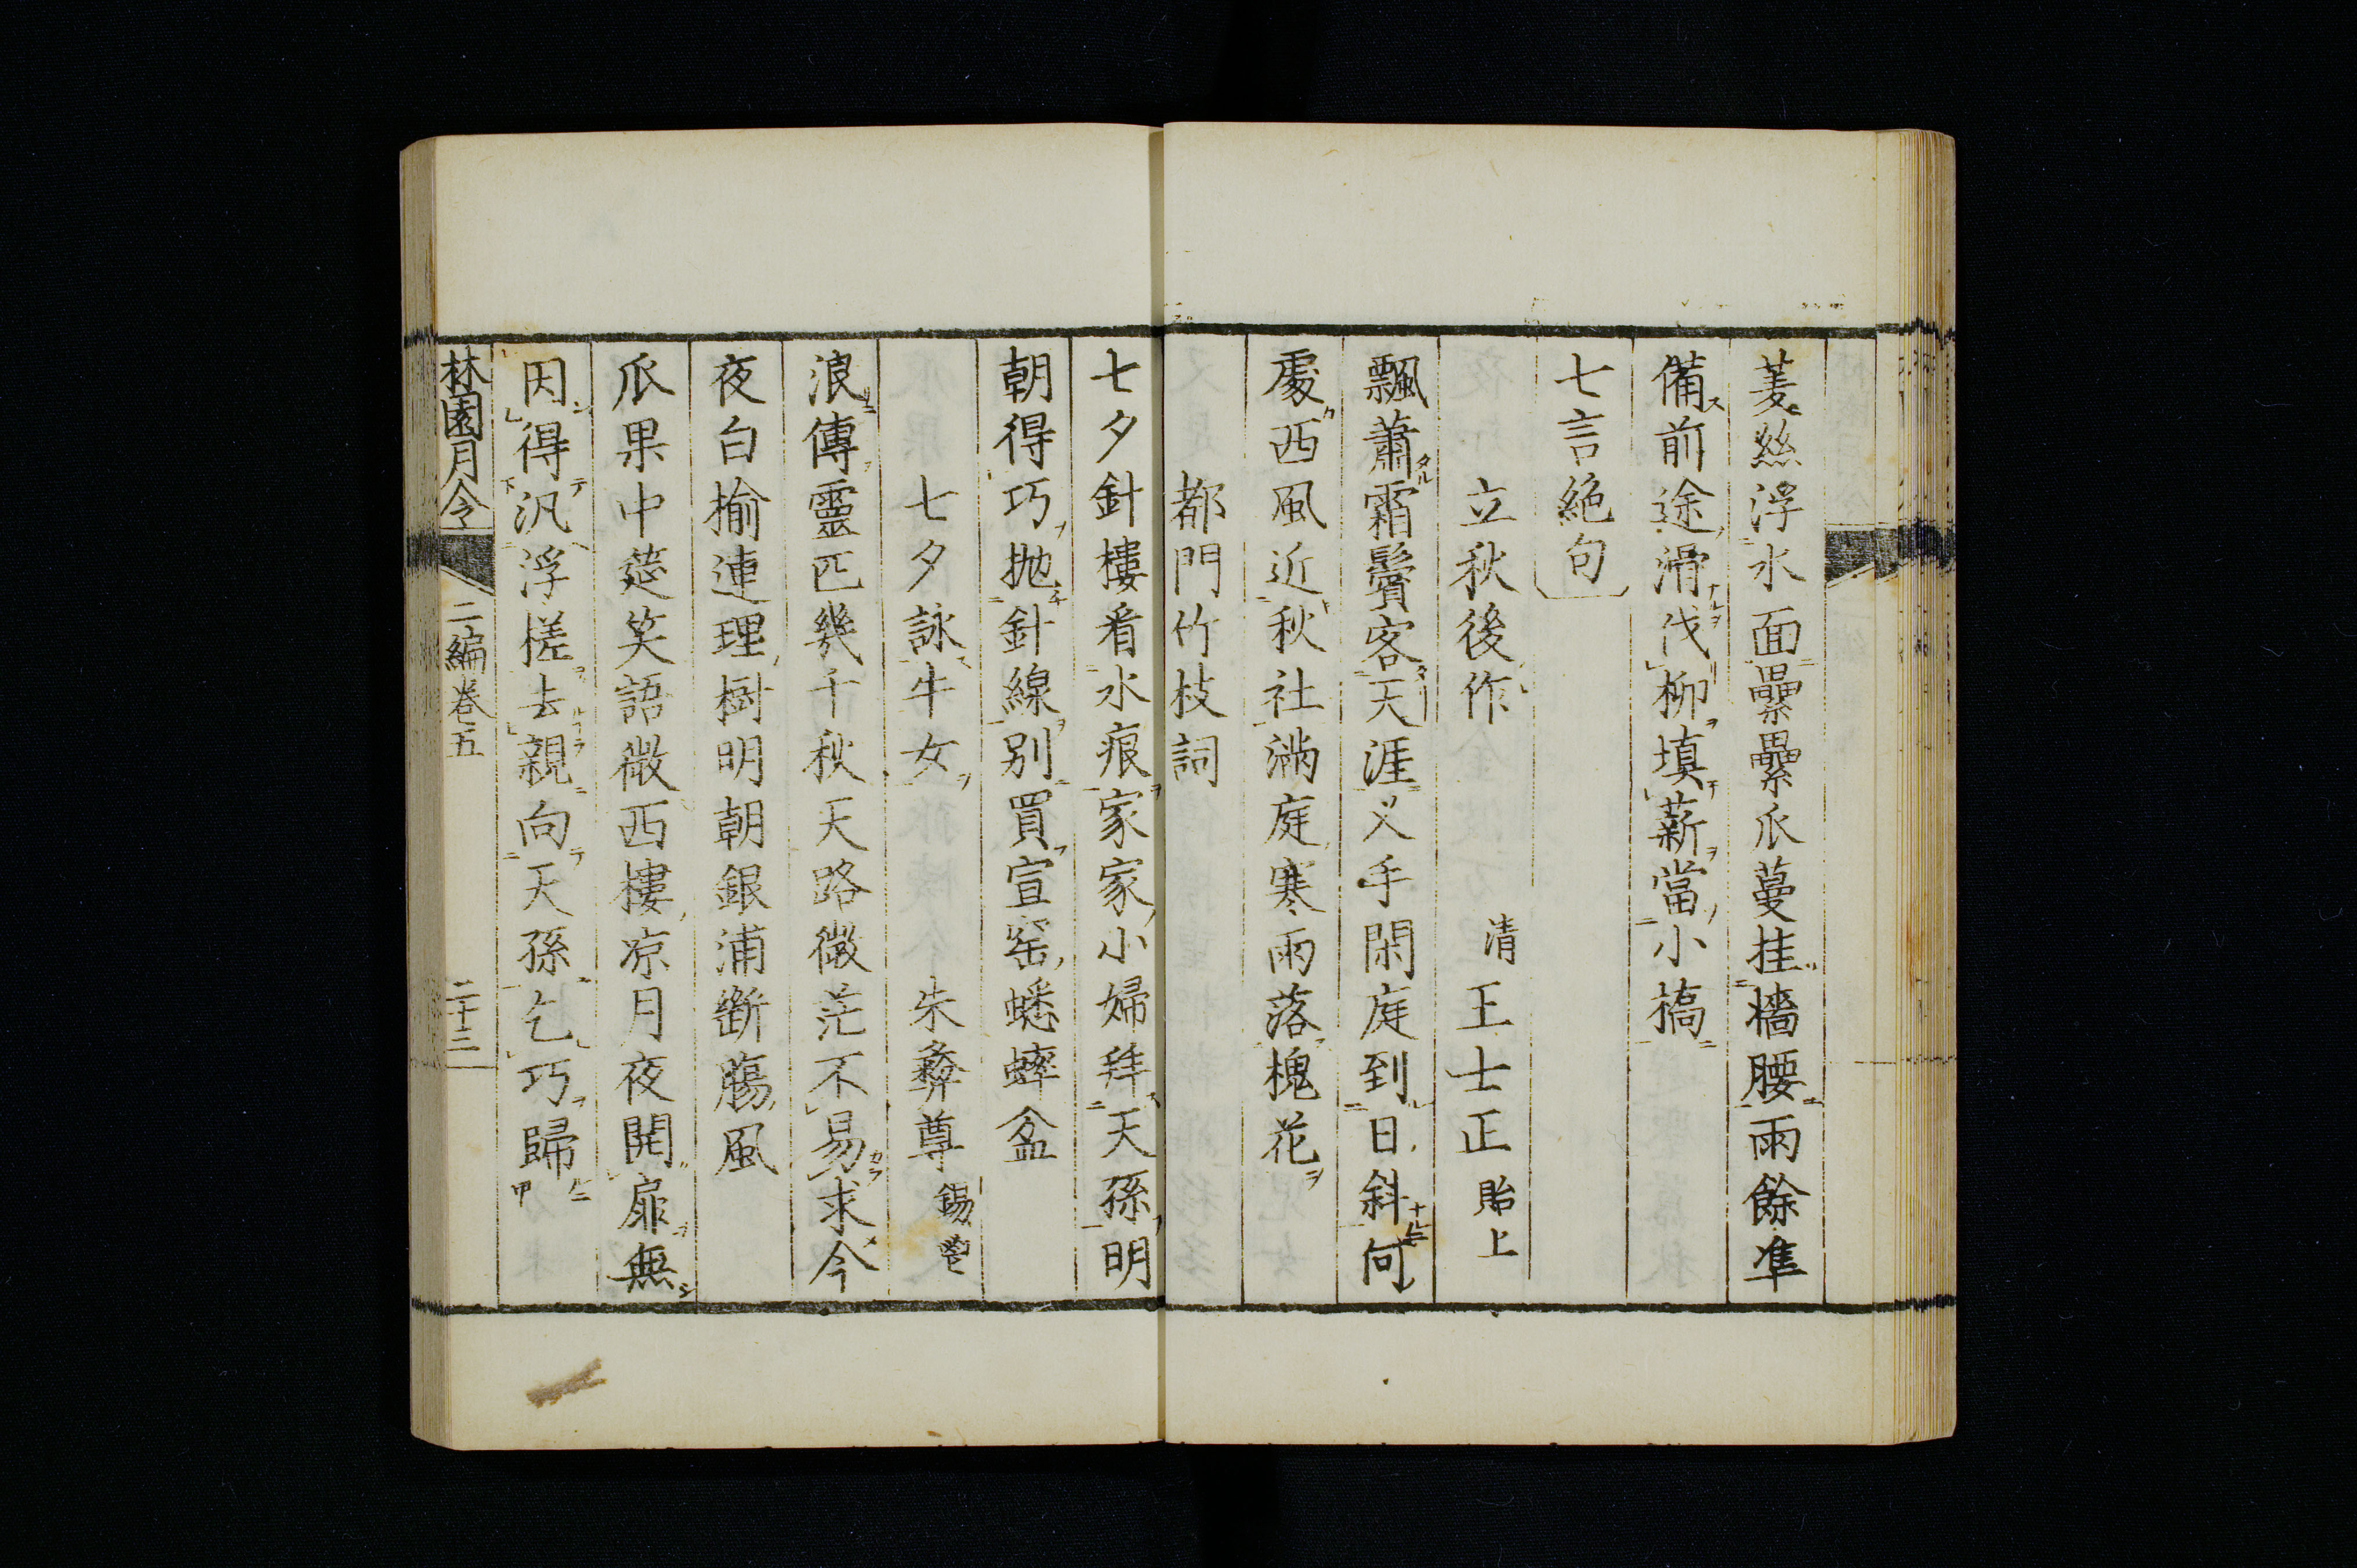 菱絲浮水面纍纍瓜蔓挂牆腰雨餘準
備前途滑伐柳填薪當小橋
七言絶句
立秋後作 清 王士正 貽上
飄蕭霜鬢客天涯义手閑庭到日斜何
處西風近秋社滿庭寒雨落槐花
都門竹枝詞
七夕針樓看水痕家家小婦拜天孫明
朝得巧抛針線別買宣窑蟋蟀盆
七夕詠牛女 朱彝尊 錫鬯
浪傳靈匹幾千秋天路微茫不易求今
夜白榆連理樹明朝銀浦斷腸風
瓜果中筵笑語微西樓凉月夜開扉無
因得汎浮槎去親向天孫乞巧歸
林園月令 二編卷五 二十三